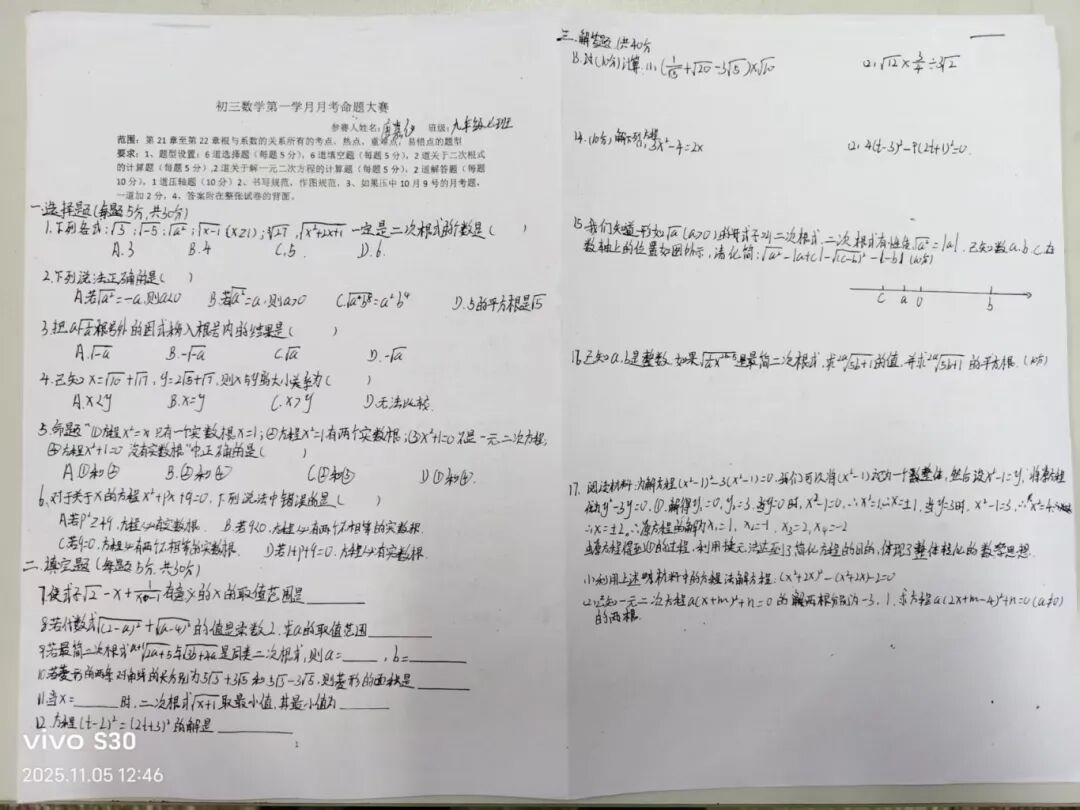 初三数学第一学月月考命题大赛
参赛人姓名: 班级:九年级七班
范围:第 21 章至第 22 章根与系数的关系所有的考点、热点、重难点,易错点的题型
要求:1、题型设置:6 道选择题(每题 5 分),6 道填空题(每题 5 分),2 道关于二次根式
的计算题(每题 5 分),2 道关于解一元二次方程的计算题(每题 5 分),2 道解答题(每题
10 分),1 道压轴题(10 分)2、书写规范,作图规范,3、如果压中 10 月 9 号的月考题,
一道加 2 分,4、答案附在整张试卷的背面。
一.选择题(每题5分,共30分)
1.下列各式:√3;√-5;√a²;√x-1 (x≥1);∛27;√x²+2x+1 一定是二次根式的个数是( )
A.3 B.4 C.5 D.6
2.下列说法正确的是( )
A.若√a²=-a,则a<0 B.若√a²=a,则a>0 C.√a⁴b⁸=a²b⁴ D.5的平方根是√5
3.把a根号外的因式移入根号内的结果是( )
A.√-a B.-√-a C.√a D.-√a
4.已知x=√10+√17,y=2√5+√7,则x与y的大小关系为( )
A.x<y B.x=y C.x>y D.无法比较
5.命题"①方程x²=x只有一个实数根x=1;②方程x²=1有两个实数根;③x²+1=0不是一元二次方程;
④方程x²+1=0没有实数根"中正确的是( )
A.①和② B.②和④ C.①和③ D.①和④
6.对于关于x的方程x²+px+q=0,下列说法中错误的是( )
A.若p²≥4q,方程必有实数根. B.若q<0,方程必有两个不相等的实数根.
C.若q=0,方程必有两个不相等的实数根. D.若1+p+q=0,方程必有实数根.
二.填空题(每题5分,共30分)
7.使式子√2-x+ 有意义的x的取值范围是
8.若代数式√(2-a)²+√(a-4)²的值是常数2,求a的取值范围
9.若最简二次根式 是同类二次根式,则a= ,b=
10.若菱形的两条对角线的长分别为5√3+3√5和5√3-3√5,则菱形的面积是
11.当x= 时,二次根式√x+1取最小值,其最小值为
12.方程(t-2)²=(2t+3)²的解是
1
三.解答题(共40分
13.(10分)计算:(1)(1/√5+√20-3√5)×√10 (2)√12×3/4÷3√2
14.(10分)解下列方程 3x²-4=2x (2).4(t-3)²-9(2t+1)²=0.
15.我们知道:形如√a(a≥0)的式子叫二次根式,二次根式有性质√a²=|a|.已知数a.b.c.在
数轴上的位置如图所示,请化简:√a²-|a+c|-√(c-b)²-|-b| (10分)
c a 0 b
16.已知a,b是整数,如果 是最简二次根式,求 的值,并求 的平方根.(10分)
17.阅读材料:为解方程(x²-1)²-3(x²-1)=0,我们可以将(x²-1)视为一个整体,然后设x²-1=y,将原方程
化为y²-3y=0,①.解得y₁=0,y₂=3.当y=0时,x²-1=0,∴x²=1∴x=±1,当y=3时,x²-1=3,∴x²=4
∴x=±2,∴原方程的解为x₁=1,x₂=-1,x₃=2,x₄=-2
由原方程得到①的过程,利用换元法达到了简化方程的目的,体现了整体转化的数学思想.
(1)利用上述材料中的方法解方程:(x²+2x)²-(x²+2x)-2=0
(2)已知一元二次方程a(x+m)²+n=0的解两根分别为-3,1,求方程a(2x+m-4)²+n=0(a≠0)
的两根.
vivo S30
2025.11.05 12:46